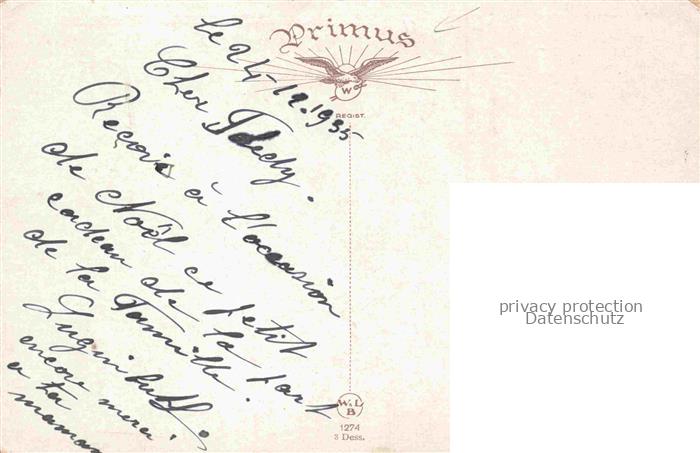 Primus
W
REGIST.
le 24-12.1935
Cher Tedy.
Reçois à l'occasion
de Noël ce petit
cadeau de la part
de la Famille
encore merci
a ta
maman
W. L.
B
1274
3 Dess.
privacy protection
Datenschutz